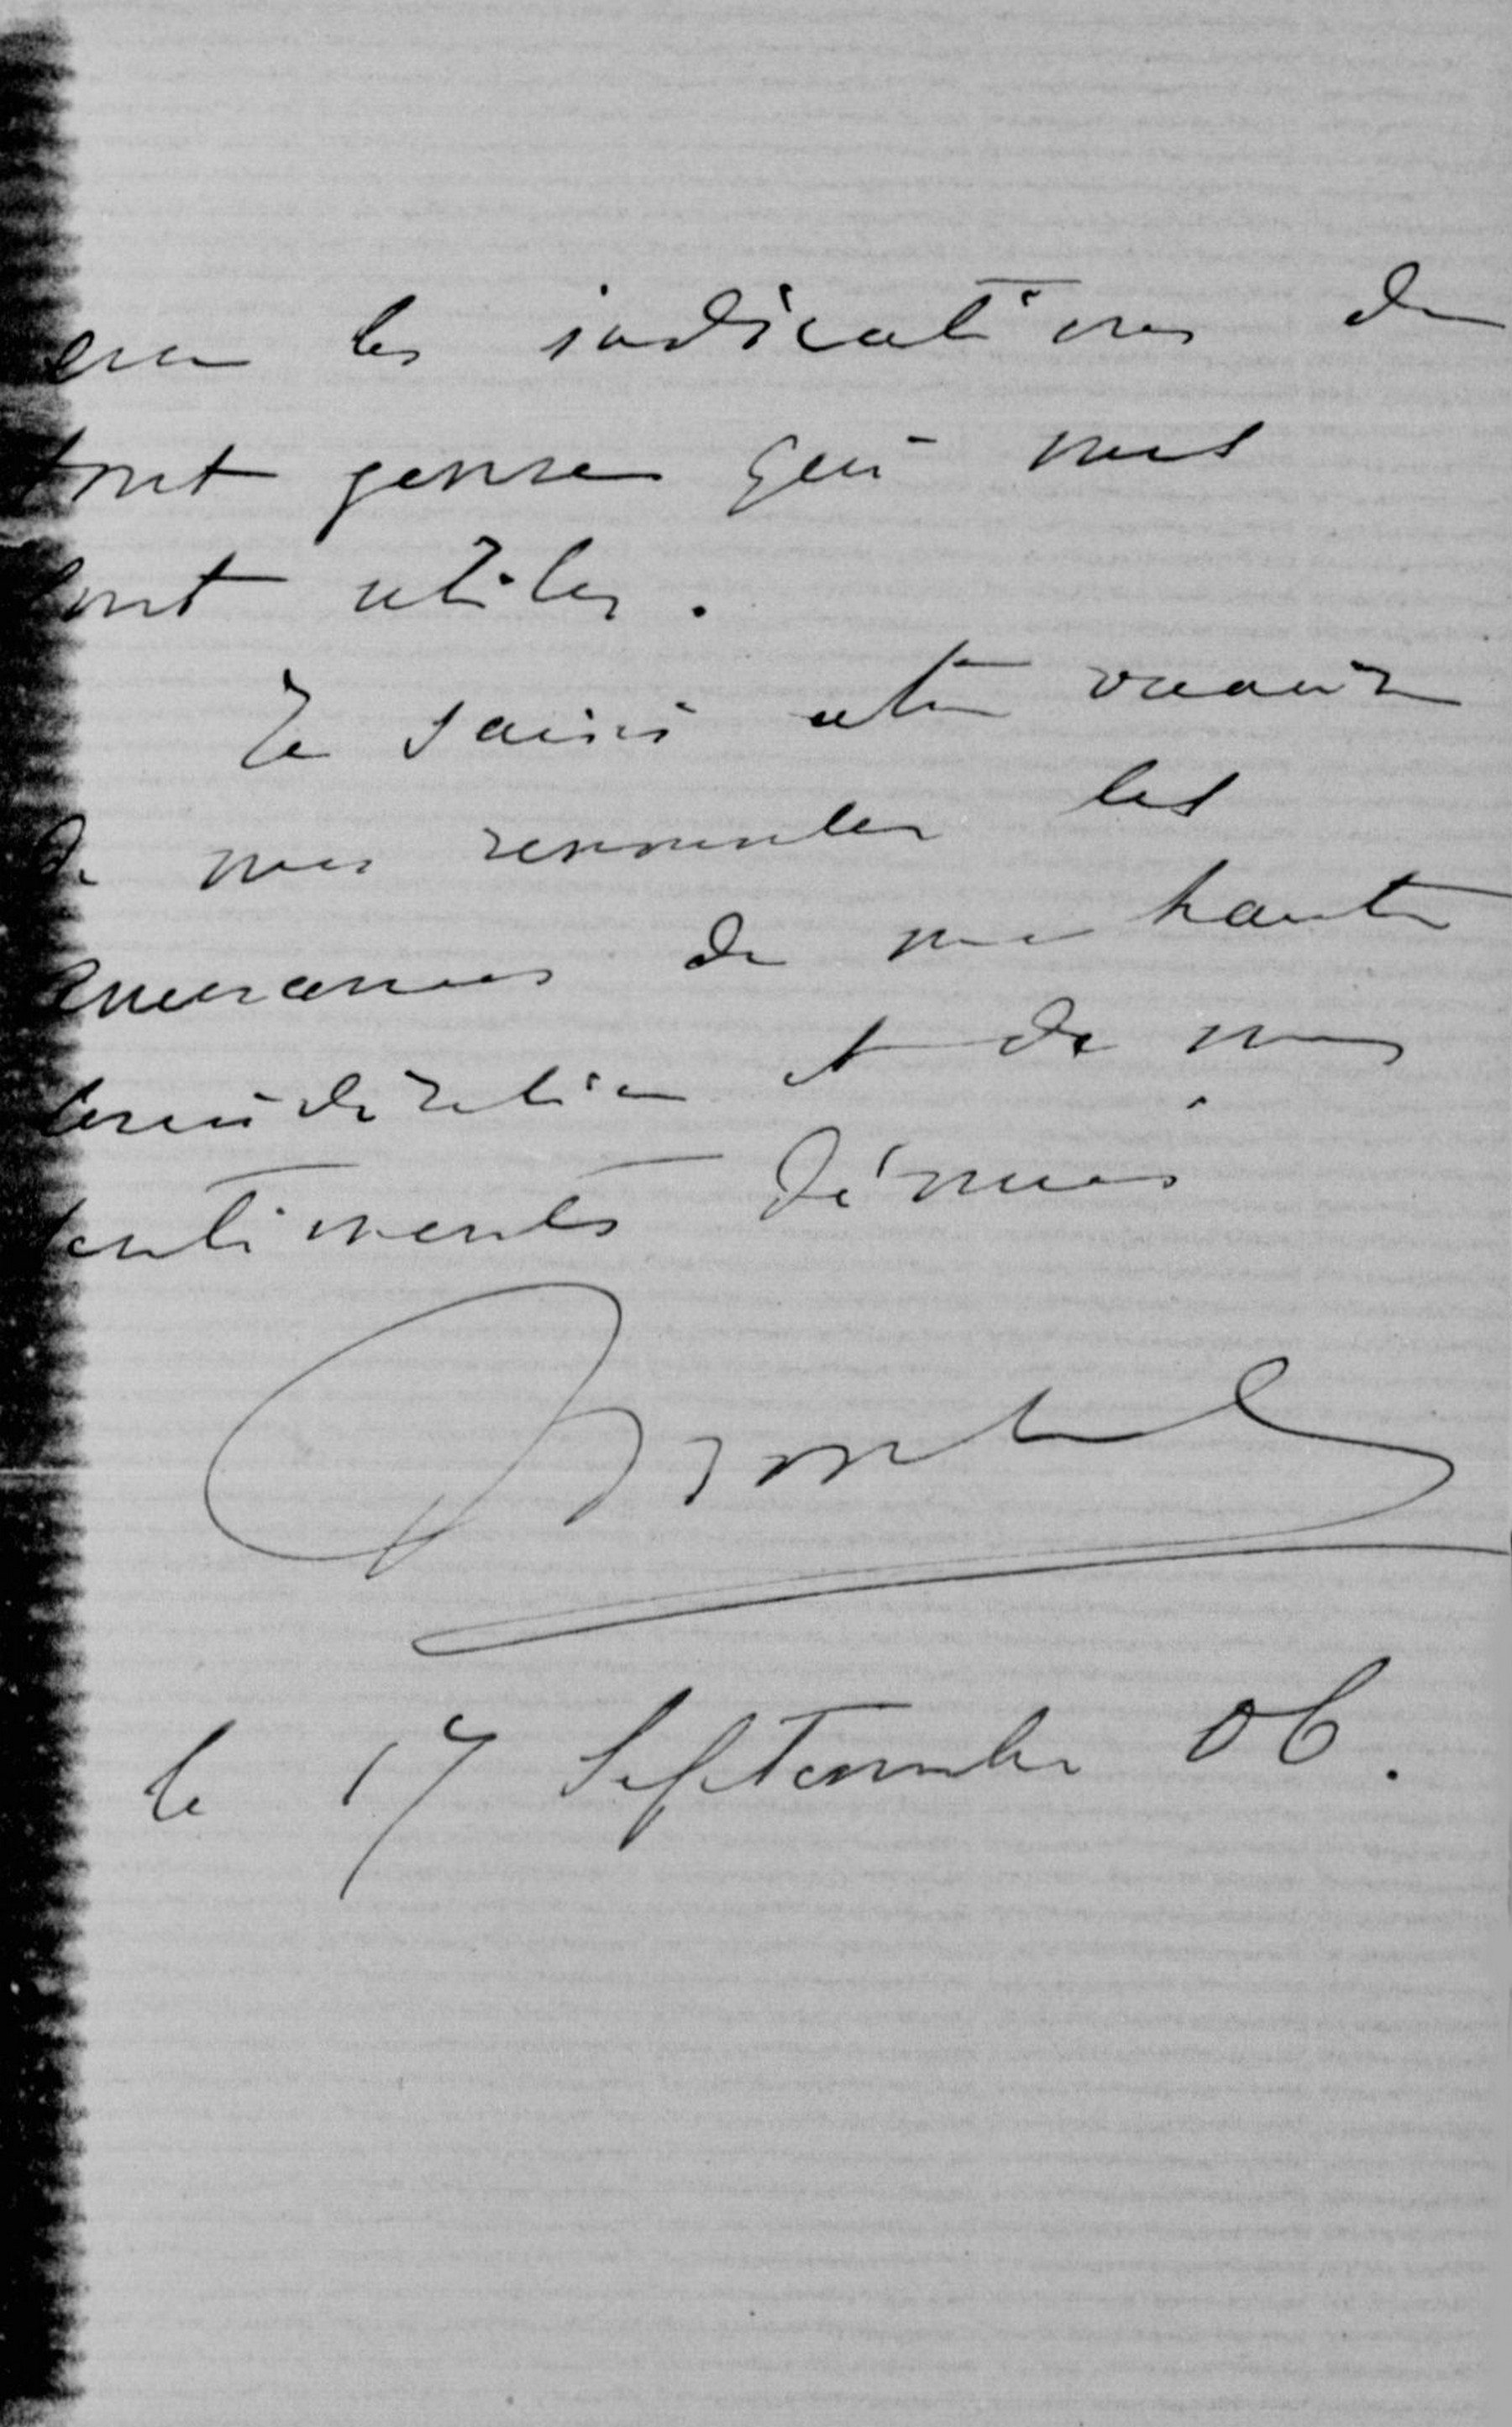 les indications de
tout genre qui nous
sont utiles.
Je saisis cette occasion
de vous renouveler les
assurances de ma haute
considération et de mes
sentiments dévoués
le 17 Septembre 06.